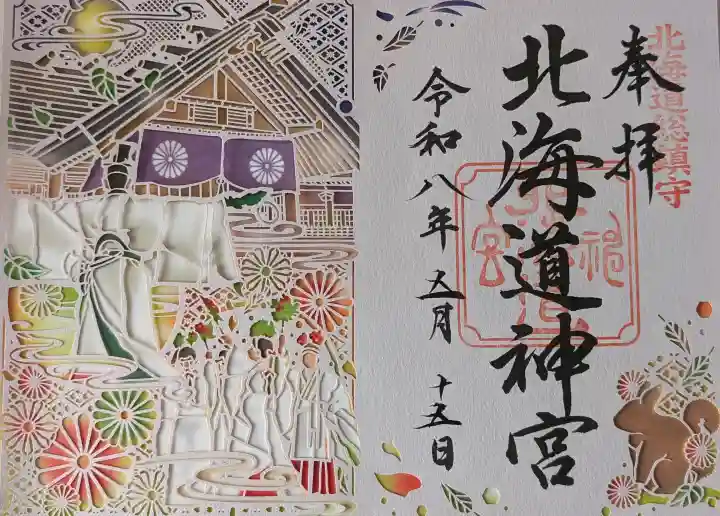 北海道総鎮守
奉拝
北海道神宮
令和八年五月十五日